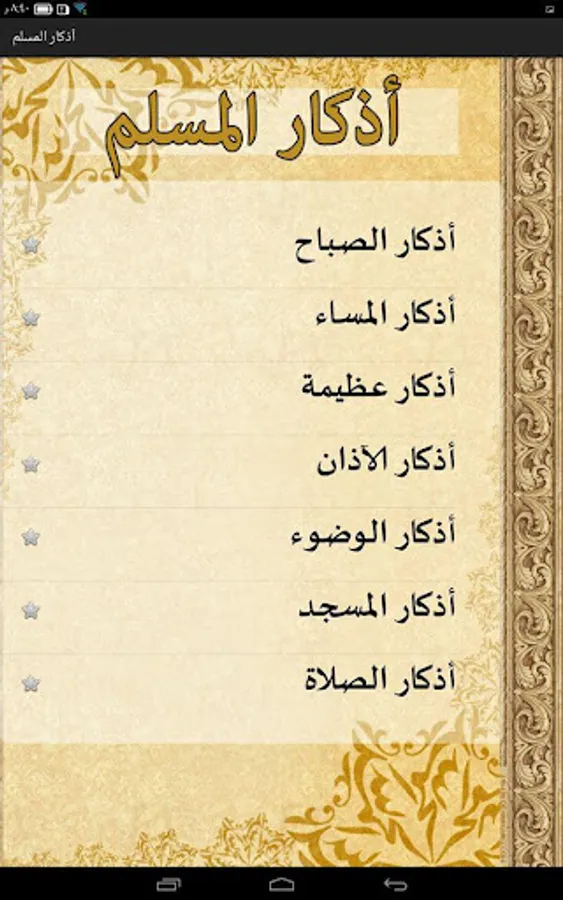 ٨:٤٠ م
أذكار المسلم
أذكار المسلم
أذكار الصباح
أذكار المساء
أذكار عظيمة
أذكار الآذان
أذكار الوضوء
أذكار المسجد
أذكار الصلاة